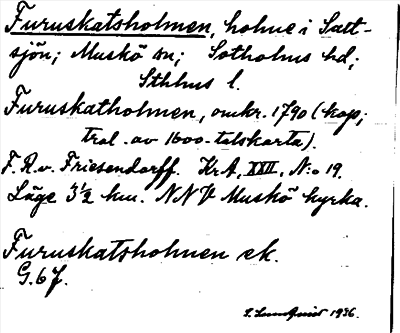 Furuskatsholmen, holme i Salt-
sjön; Muskö sn; Sotholms hd;
Sthlms l.
Furuskatholmen, omkr. 1790 (kop;
trol. av 1600-talskarta).
F. R. v. Friesendorff. KrA, XXII, N:o 19.
Läge 3½ km. NNV Muskö kyrka.
Furuskatsholmen ek.
G. 67.
1936.